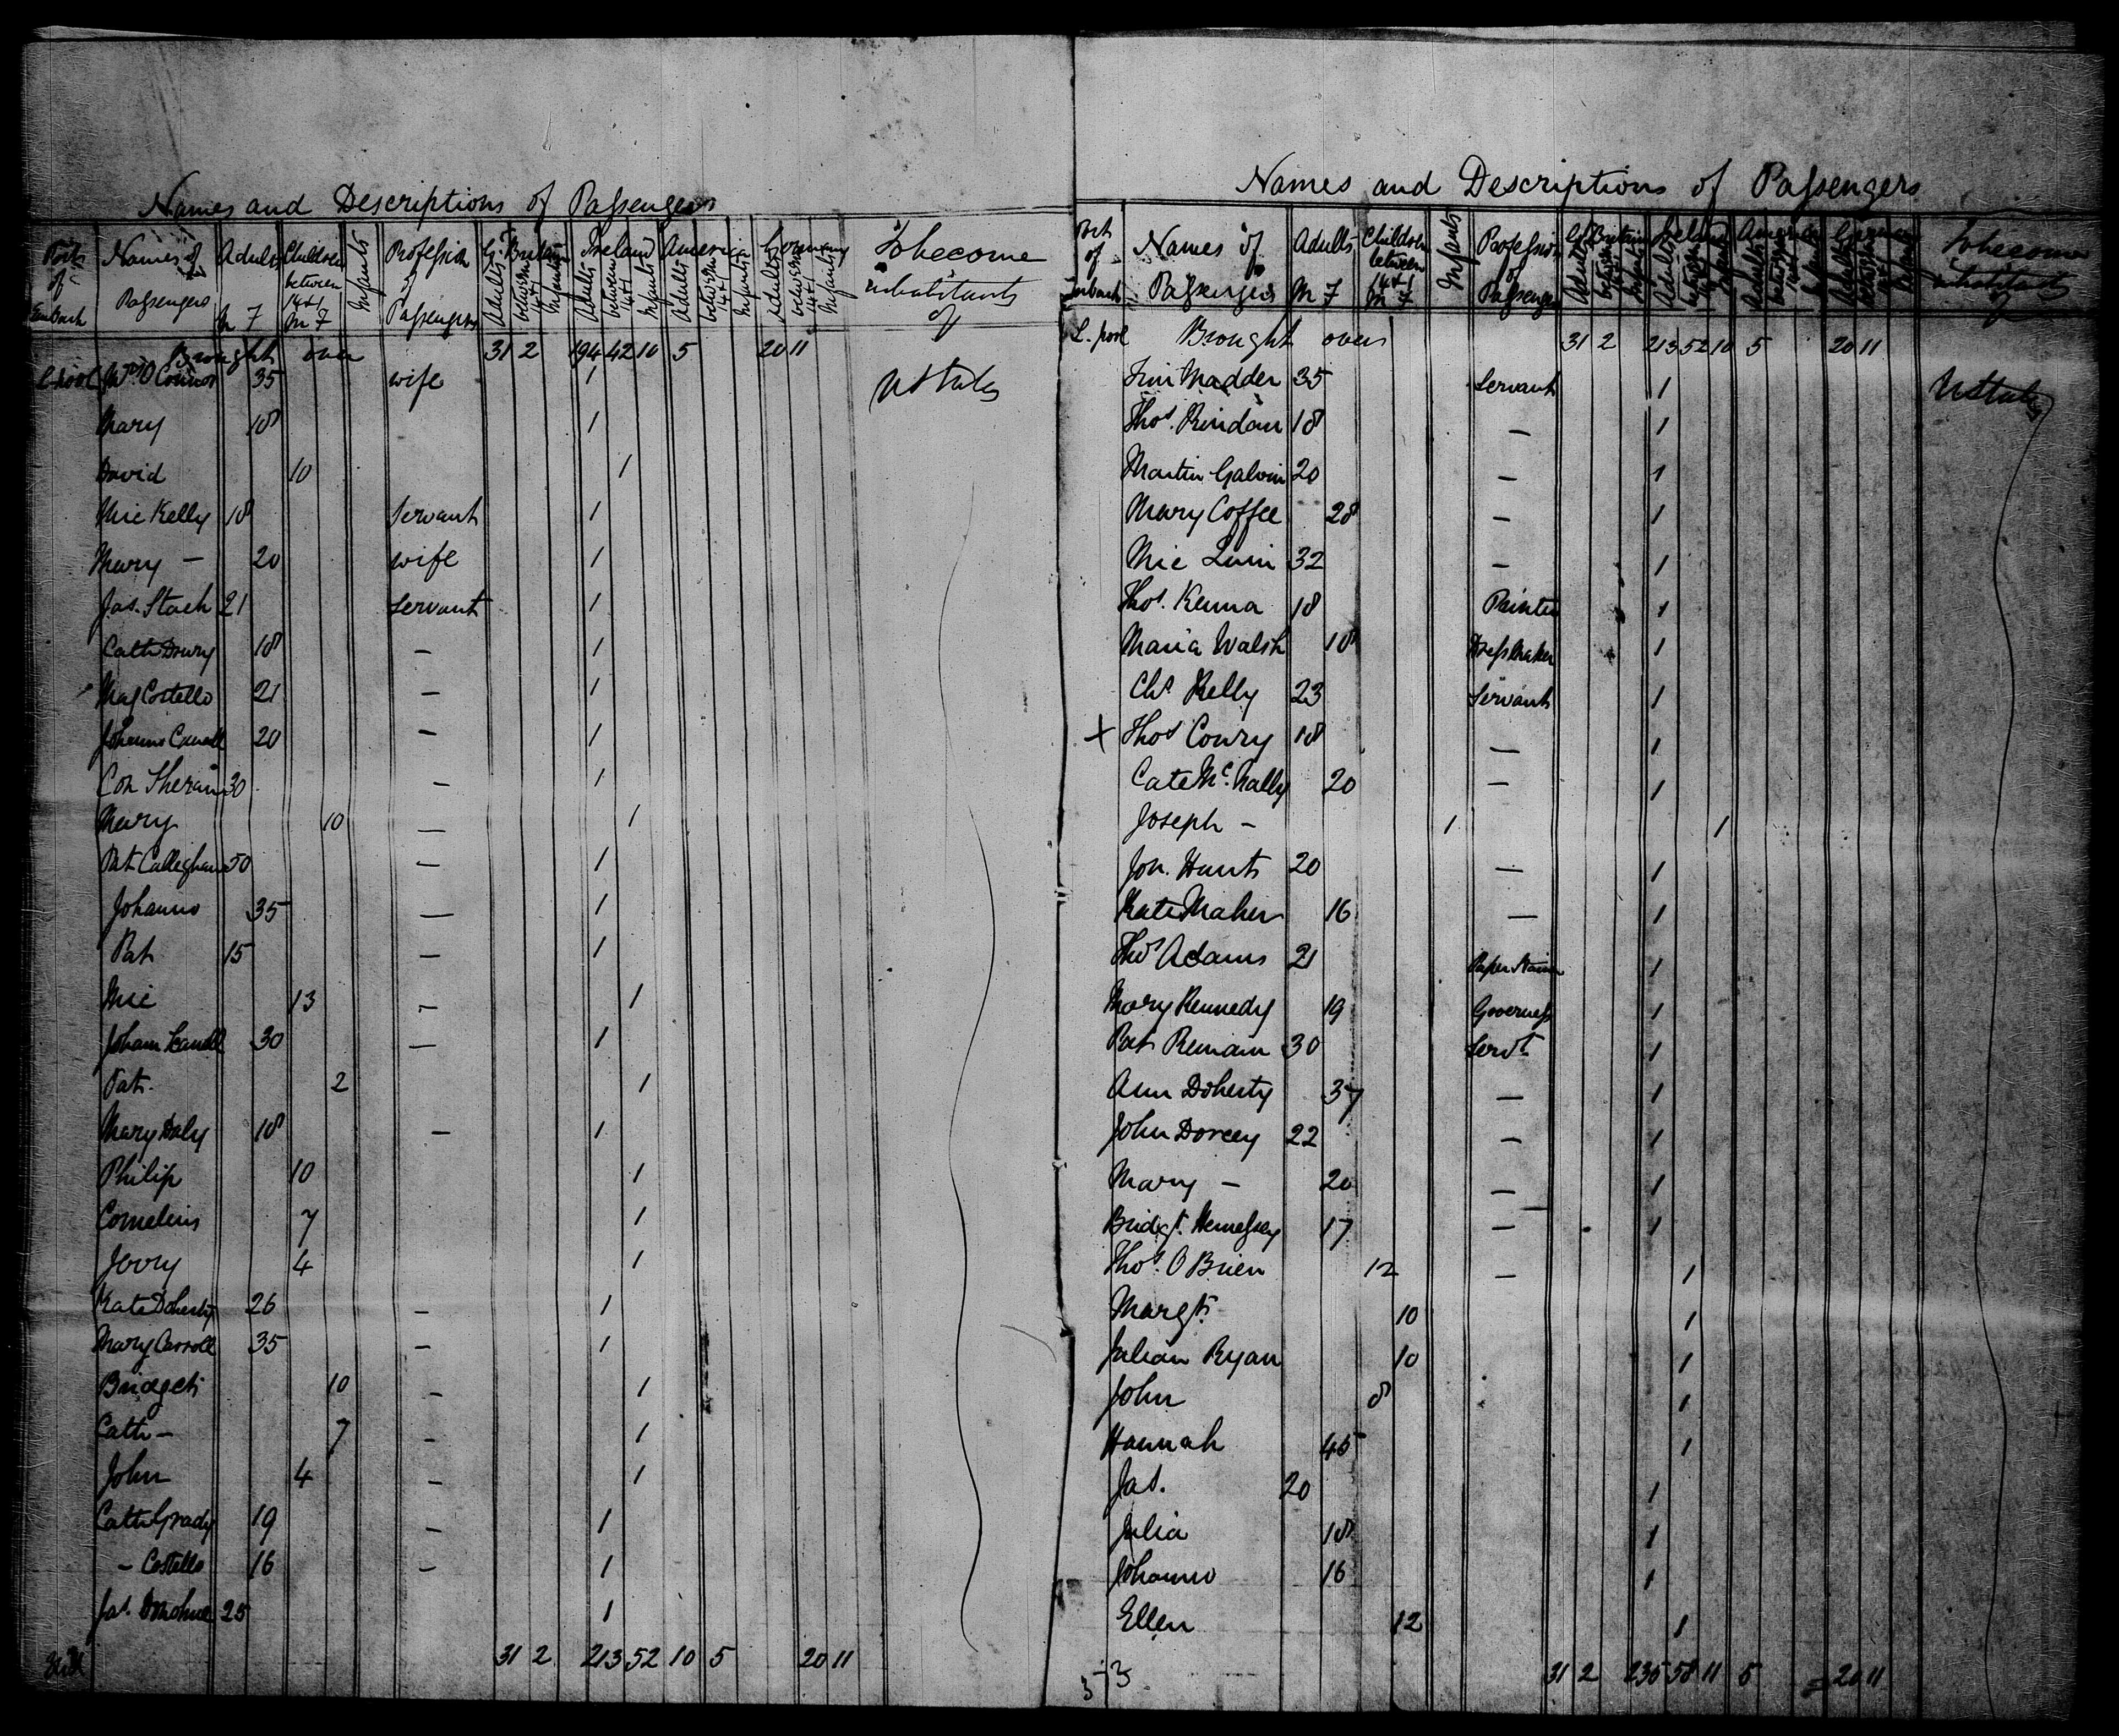 Names and Descriptions of Passengers
Port of Embark Names of Passengers Adults M 7 Children between 14 & 1 M 7 Infants Profession of Passengers Gt. Britain Adults between 14 & 1 Infants Ireland Adults between 14 & 1 Infants America Adults between 14 & 1 Infants Germany Adults between 14 & 1 Infants To become inhabitants of
Brought over 31 2 194 42 10 5 20 11
L.pool Mrs O Connor 35 wife 1 U States
Mary 18 1
David 10 1
Mic Kelly 18 Servant 1
Mary — 20 wife 1
Jas. Stack 21 Servant 1
Cath Drury 18 — 1
Mag Costello 21 — 1
Johanna 20 — 1
Con 30 — 1
Mary 10 — 1
Pat Calleghan 50 — 1
Johanna 35 — 1
Pat 15 — 1
Mic 13 — 1
30 — 1
Pat. 2 1
Mary Daly 18 — 1
Philip 10 1
Cornelius 7 1
Jerry 4 1
Kate Doherty 26 — 1
Mary Carroll 35 — 1
Bridget 10 — 1
Cath — 7 — 1
John 4 — 1
Cath Grady 19 — 1
— Costello 16 — 1
Jas. Donohue 25 1
31 2 213 52 10 5 20 11
Names and Descriptions of Passengers
Port of Embark Names of Passengers Adults M 7 Children between 14 & 1 M 7 Infants Profession of Passenger Gt Britain Adults between 14 & 1 Infants Ireland Adults between 14 & 1 Infants America Adults between 14 & 1 Infants Germany Adults between 14 & 1 Infants To become inhabitants of
L.pool Brought over 31 2 213 52 10 5 20 11
Jim Madder 35 Servant 1 U States
Thos. 18 — 1
Martin Galvin 20 — 1
Mary Coffee 28 — 1
Mic 32 — 1
Thos. Kenna 18 Painter 1
Maria Walsh 18 Dressmaker 1
Chs Kelly 23 Servant 1
X Thos Conry 18 — 1
Cate McNally 20 — 1
Joseph — 1 1
Jon. Hunt 20 — 1
Kate Maher 16 — 1
Thos Adams 21 Paper Stainer 1
Mary Kennedy 19 Governess 1
Pat 30 Servt 1
Ann Doherty 37 — 1
John Dorcey 22 — 1
Mary — 20 — 1
Bridgt. Hennessey 17 — 1
Thos. O Brien 12 — 1
Margt. 10 1
Julian Ryan 10 1
John 8 1
Hannah 45 1
Jas. 20 1
Julia 18 1
Johanna 16 1
Ellen 12 1
31 2 235 58 11 5 20 11